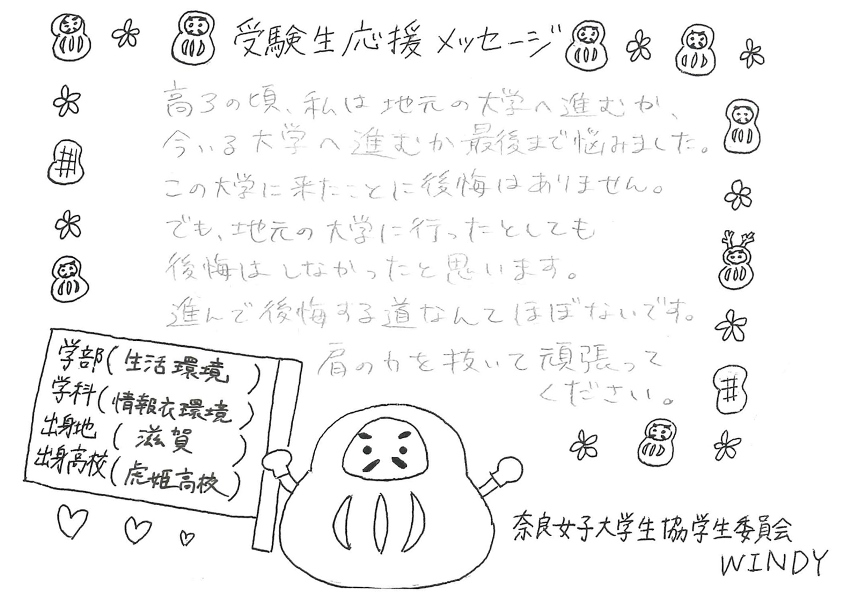 受験生応援メッセージ
高3の頃、私は地元の大学へ進むか、
今いる大学へ進むか最後まで悩みました。
この大学に来たことに後悔はありません。
でも、地元の大学に行ったとしても
後悔はしなかったと思います。
進んで後悔する道なんてほぼないです。
肩の力を抜いて頑張って
ください。
学部(生活環境)
学科(情報衣環境)
出身地(滋賀)
出身高校(虎姫高校)
奈良女子大学生協学生委員会
WINDY